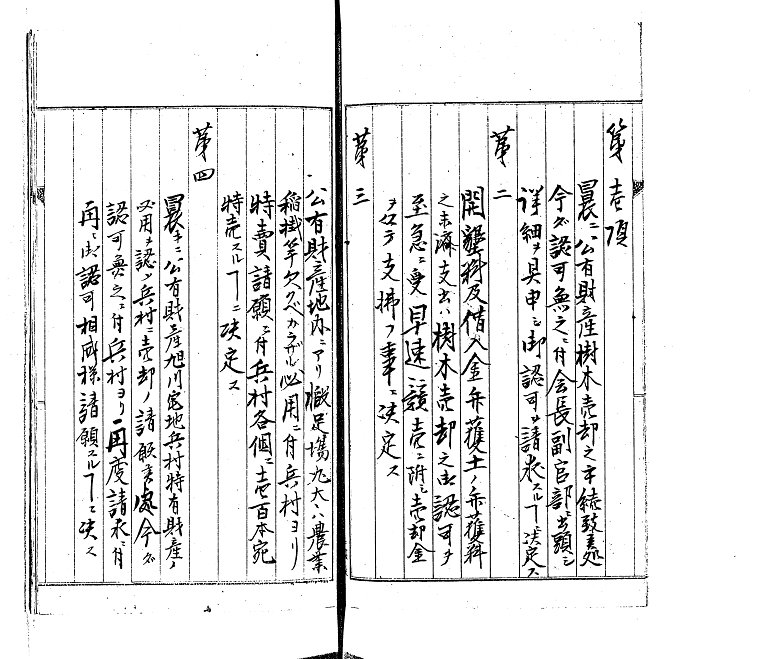 第壱項
曩ニ公有財産樹木売却之手続致シ処
今ダ認可無之ニ付会長副官部ニ出頭シ
詳細ヲ具申シ御認可ヲ請求スルヿニ決定ス
第二
開墾料及借入金弁獲土ノ弁獲料
之未済支出ハ樹木売却之御認可ヲ
至急ニ受早速競売ニ附シ売却金
ヲ以テ支拂フ事ニ決定ス
第三
公有財産地内ニアリ楲足場丸太ハ農業
稲掛竿欠クベカラザル必用ニ付兵村ヨリ
特賣請願ニ付兵村各個ニ壱百本宛
特売スルヿニ決定ス
第四
曩キニ公有財産旭川宅地兵村特有財産ノ
必用ヲ認メ兵村ニ売却ノ請願書処今ダ
認可無之ニ付兵村ヨリ再度請求ニ付
再ニ御認可相成様請願スルヿニ決ス